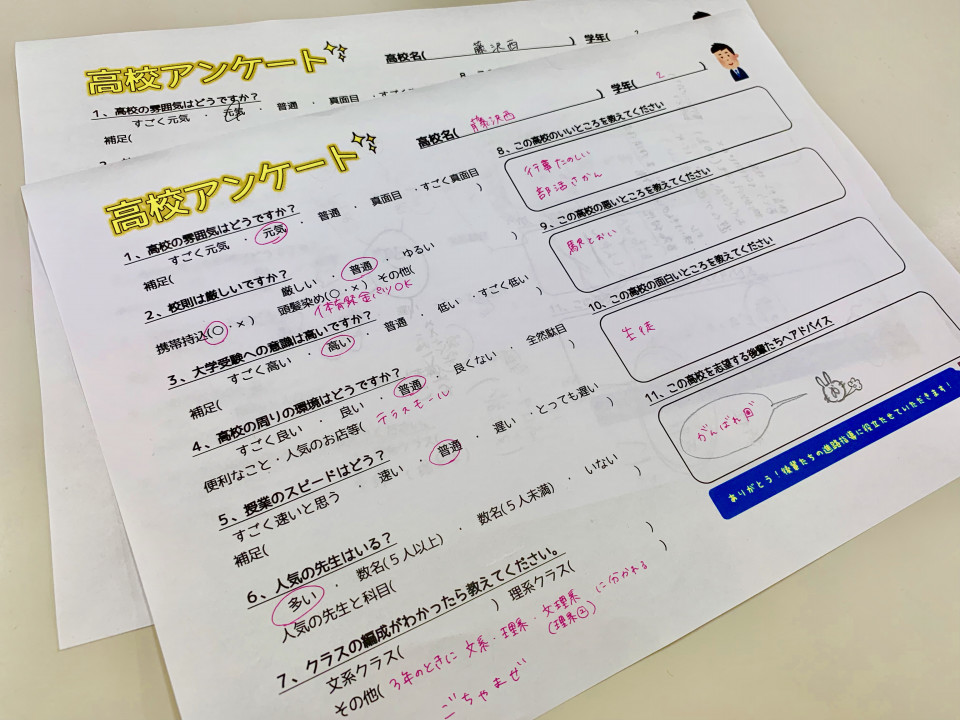 高校アンケート
高校名( 藤沢西 ) 学年(
1、高校の雰囲気はどうですか?
すごく元気 ・ 元気 ・ 普通 ・ 真面目 ・すご
補足(
高校アンケート
高校名( 藤沢西 ) 学年( 2 )
1、高校の雰囲気はどうですか?
すごく元気 ・ 元気 ・ 普通 ・ 真面目 ・すごく真面目
補足( )
2、校則は厳しいですか?
厳しい ・ 普通 ・ ゆるい
携帯持込(○・×) 頭髪染め(○・×) その他( )
体育祭金パツOK
3、大学受験への意識は高いですか?
すごく高い ・ 高い ・ 普通 ・ 低い ・すごく低い
補足( )
4、高校の周りの環境はどうですか?
すごく良い ・ 良い ・ 普通 ・ 良くない ・ 全然駄目
便利なこと・人気のお店等( テラスモール )
5、授業のスピードはどう?
すごく速いと思う ・ 速い ・ 普通 ・ 遅い ・とっても遅い
補足( )
6、人気の先生はいる?
多い ・ 数名(5人以上) ・ 数名(5人未満) ・ いない
人気の先生と科目( )
7、クラスの編成がわかったら教えてください。
文系クラス( ) 理系クラス( )
その他( 3年のときに 文系・理系・文理系 に分かれる
(理系②)
ごちゃまぜ
8、この高校のいいところを教えてください
行事たのしい
部活さかん
9、この高校の悪いところを教えてください
駅とおい
10、この高校の面白いところを教えてください
生徒
11、この高校を志望する後輩たちへアドバイス
がんばれ
ありがとう!後輩たちの進路指導に役立たせていただきます!